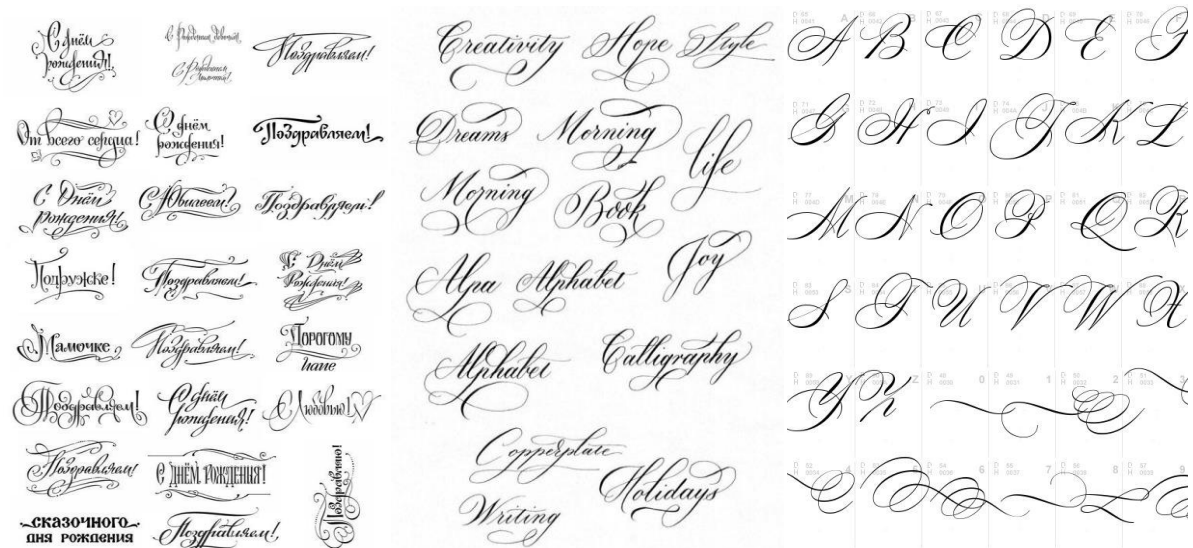 С днём
рождения!
С Рождением девочки!
С Рождением
мальчика!
Поздравляем!
От всего сердца!
С днём
рождения!
Поздравляем!
С Днём
Рождения!
С Юбилеем!
Поздравляем!
Подружке!
Поздравляем!
С Днём
Рождения!
Мамочке
Поздравляем!
Дорогому
папе
Поздравляем!
С днём
рождения!
С Любовью!
Поздравляем!
С ДНЁМ РОЖДЕНИЯ!
Поздравляю!
СКАЗОЧНОГО
ДНЯ РОЖДЕНИЯ
Поздравляем!
Creativity Hope Style
Dreams Morning life
Morning Book
Joy
Alpa Alphabet
Alphabet Calligraphy
Copperplate
Holidays
Writing
A B C D E F
G H I J K L
M N O P Q R
S T U V W X
Y Z 0 1 2 3
4 5 6 7 8 9